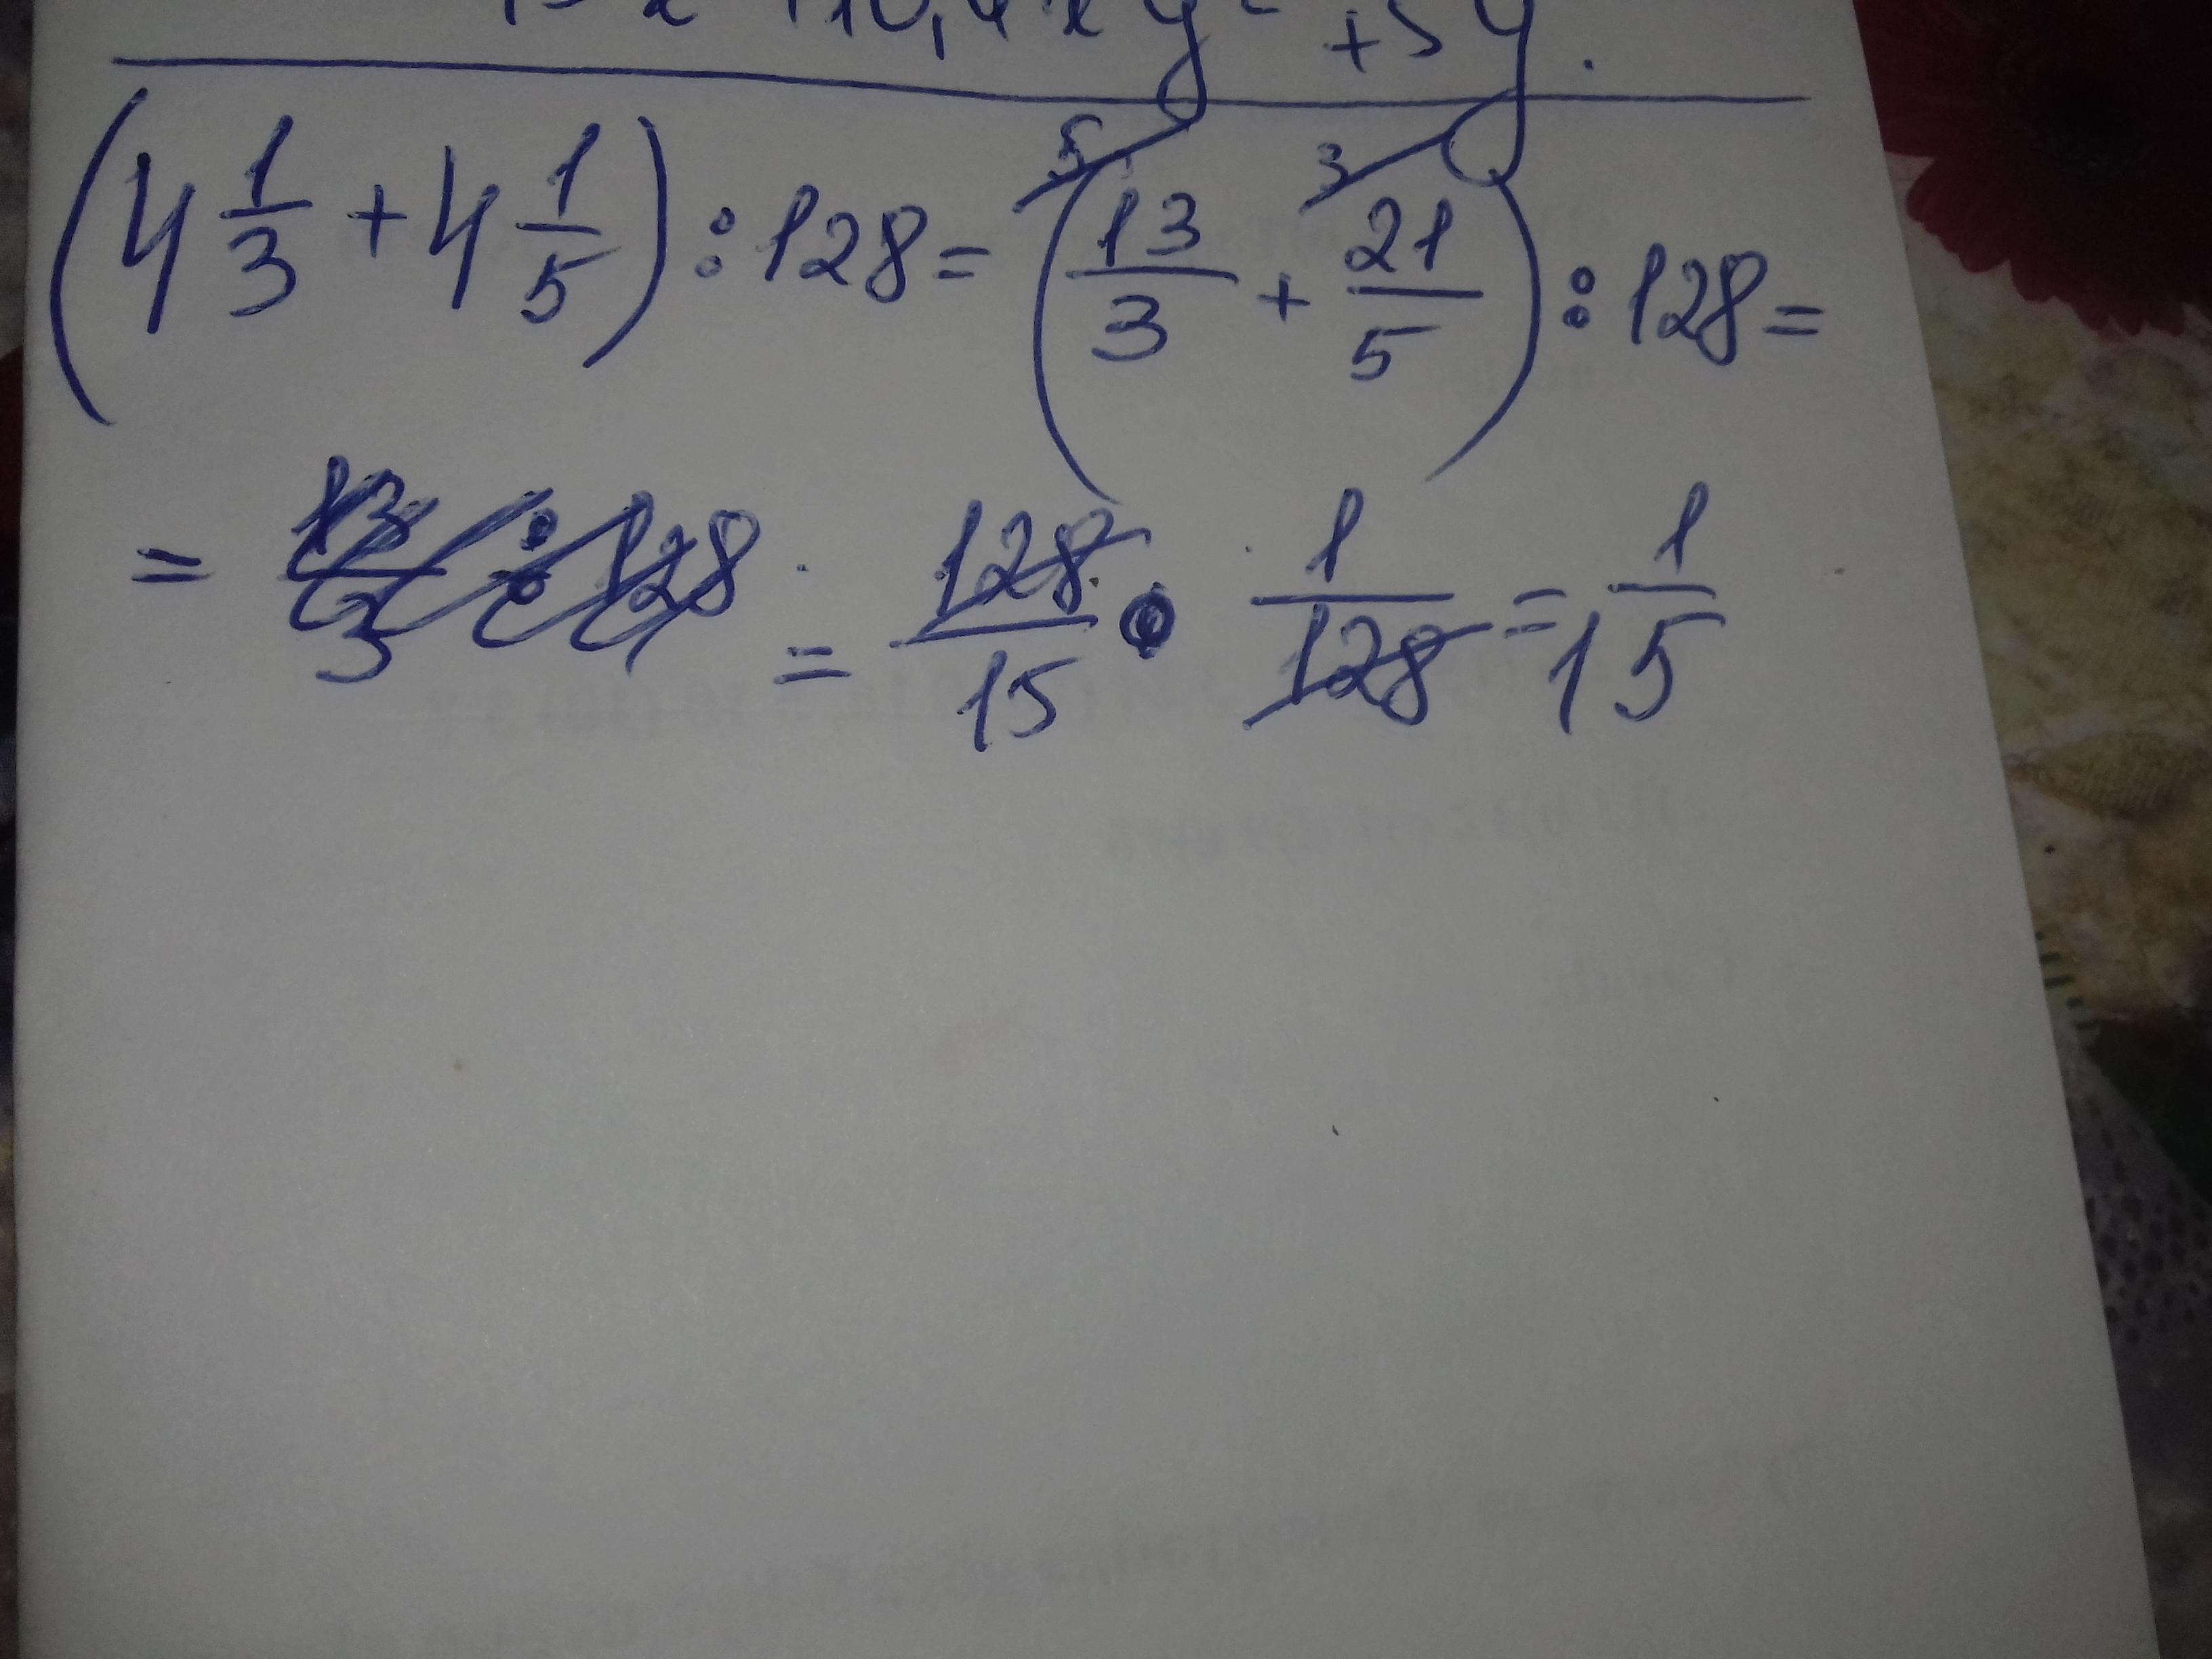 (4 1/3 + 4 1/5) : 128 = (13/3 + 21/5) : 128 =
= 13/3 : 128 = 128/15 · 1/128 = 1/15